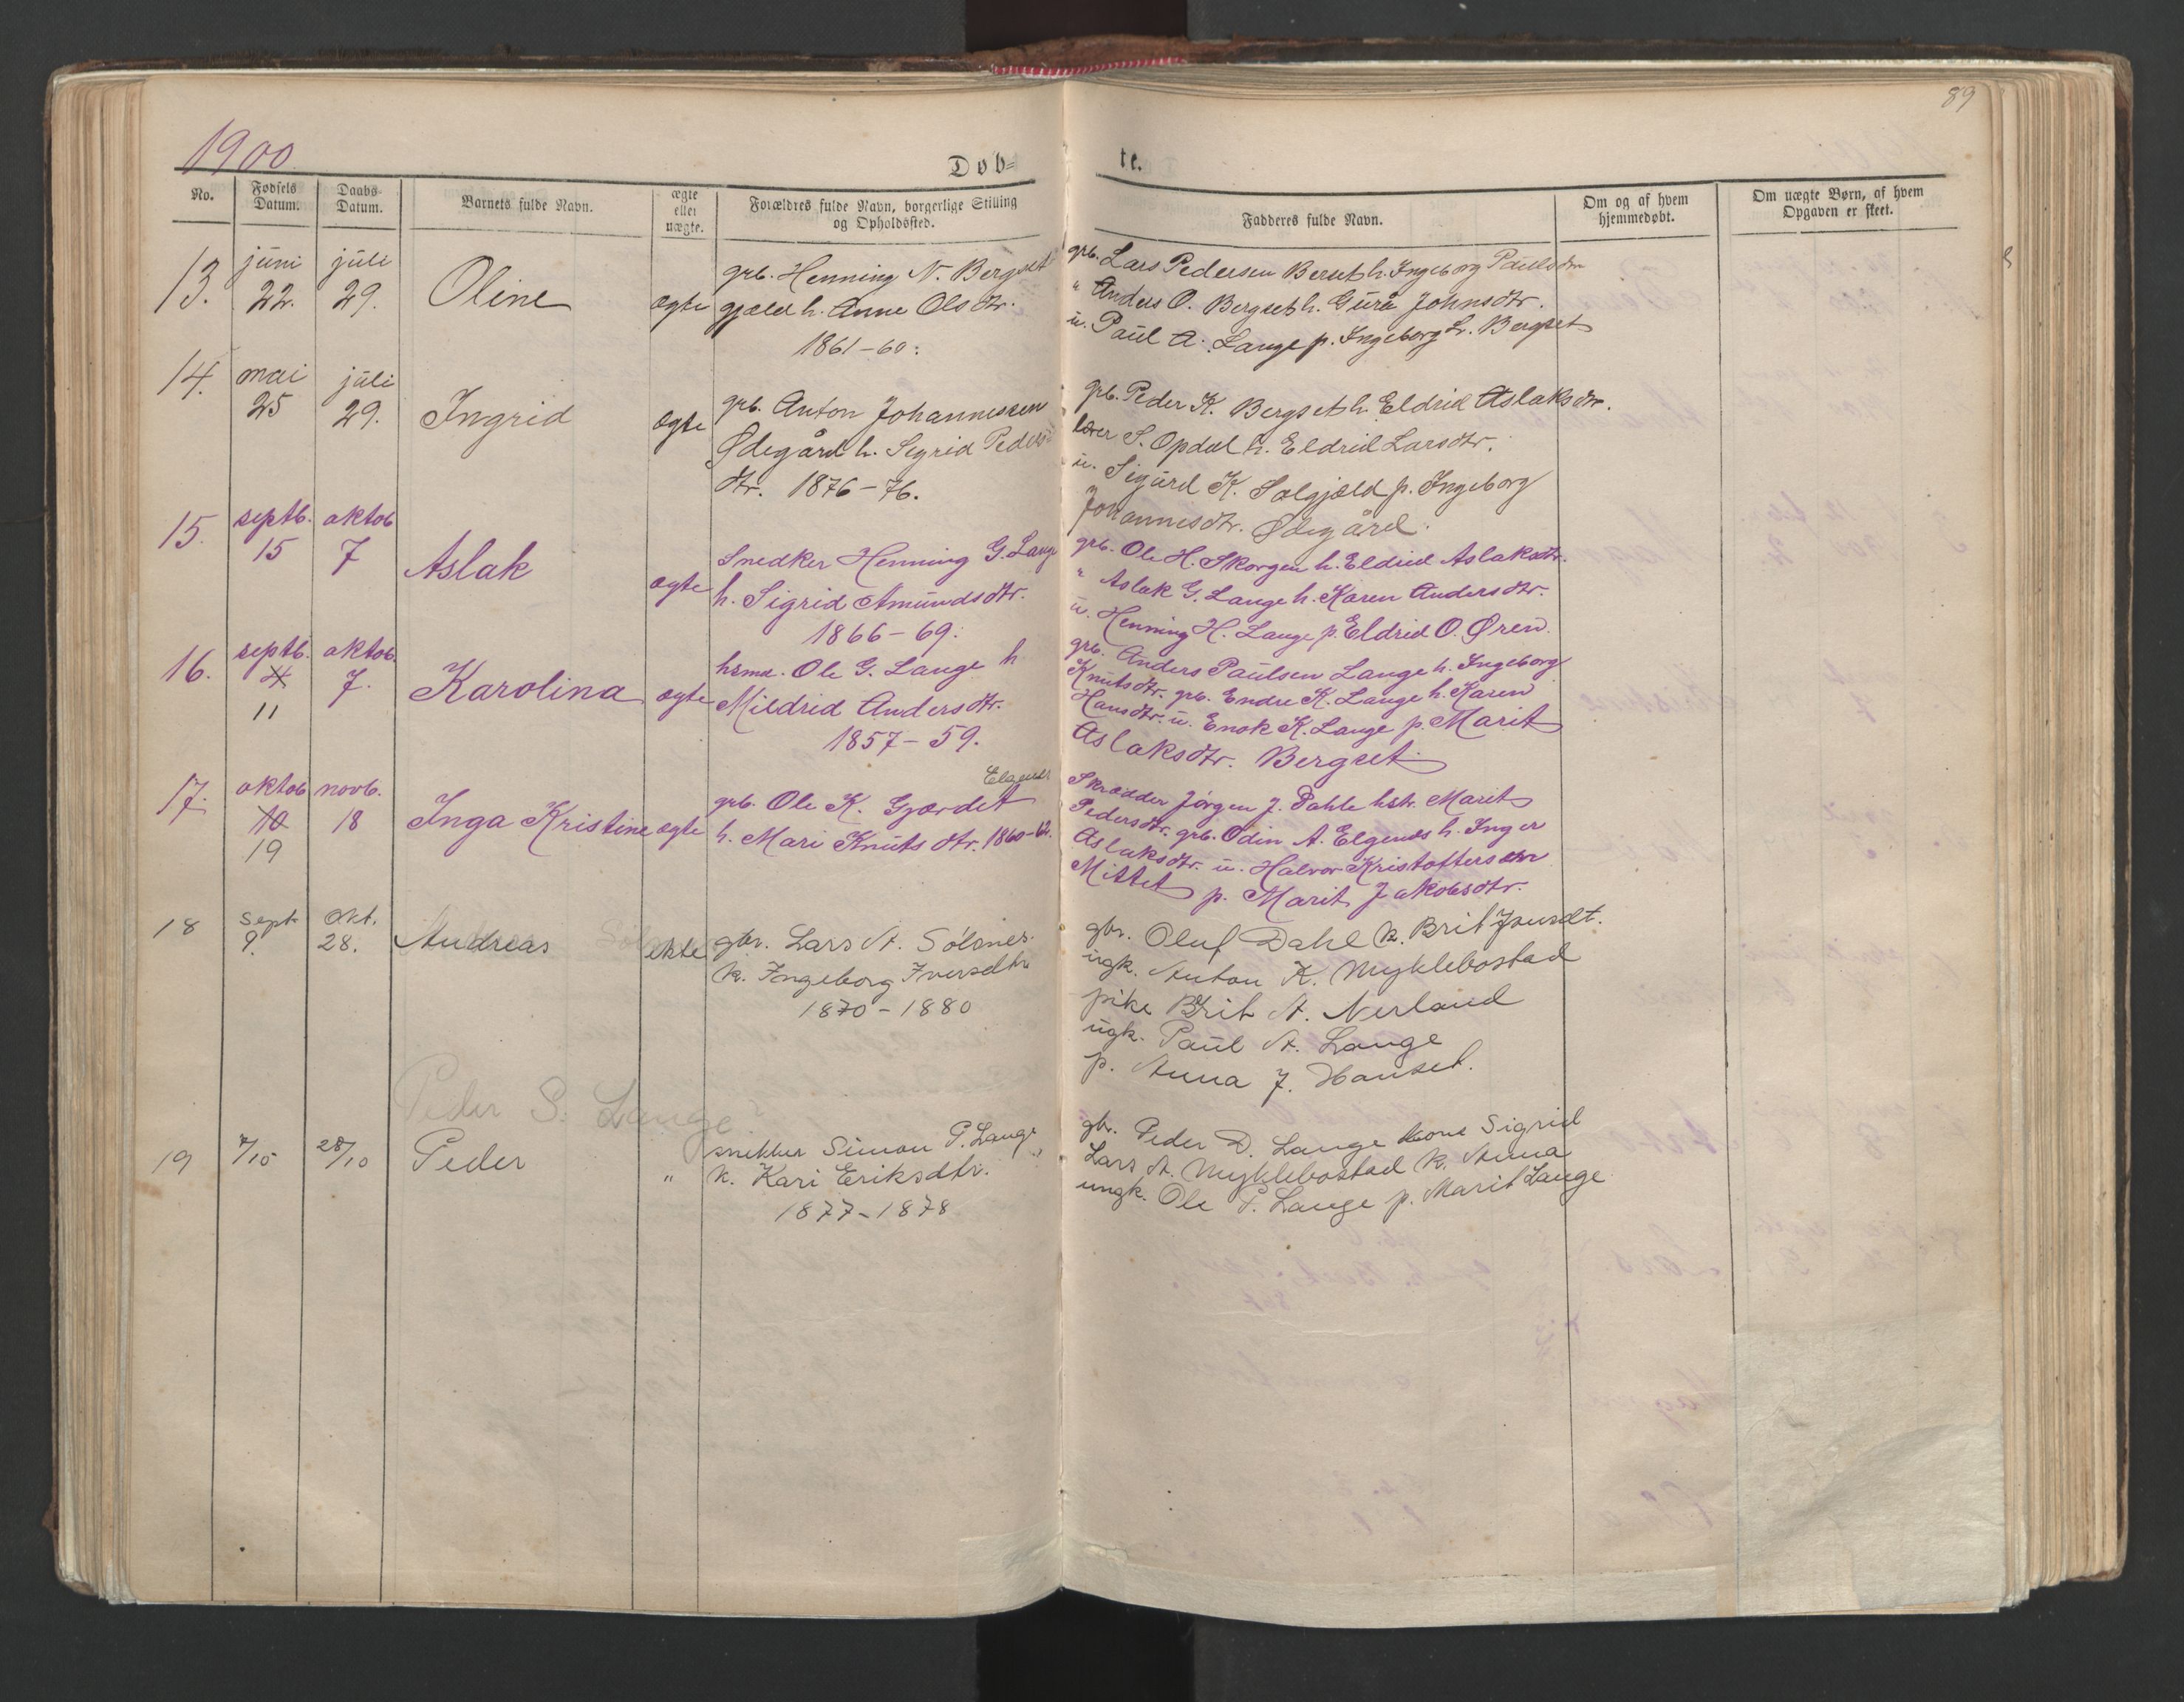 89
1900
Døb-
te.
No.
Fødsels Datum.
Daabs-Datum.
Barnets fulde Navn.
ægte eller uægte.
Forældres fulde Navn, borgerlige Stilling og Opholdssted.
Fadderes fulde Navn.
Om og af hvem hjemmedøbt.
Om uægte Børn, af hvem Opgaven er skeet.
13. juni 22. juli 29. Oline ægte
grb. Henning N. Bergset
gjæld h. Anne Olsdtr.
1861-60.
grb. Lars Pedersen Berset h. Ingeborg Paulsdtr
" Anders O. Bergset h. Gurå Johnsdtr.
u. Paul A. Lange p. Ingeborg L. Bergset
14. mai 25 juli 29. Ingrid ægte
grb. Anton Johannessen
Ødegård h. Sigrid Peders
dtr. 1876-76.
grb. Peder K. Bergset h. Eldrid Aslaksdtr.
lærer S. Opdøl h. Eldrid Larsdtr.
u. Sigurd K. Solgjæld p. Ingeborg
Johannesdtr. Ødegård.
15. septb. 15 oktob 7 Aslak ægte
Snedker Henning G. Lange
h. Sigrid Amundsdtr.
1866-69.
grb. Ole H. Skorgen h. Eldrid Aslaksdtr.
" Aslak G. Lange h. Karen Andersdtr.
u. Henning H. Lange p. Eldrid O. Øren.
16. septb. 4 11 oktob. 7. Karolina ægte
hsmd. Ole G. Lange h
Mildrid Andersdtr.
1857-59.
grb. Anders Paulsen Lange h. Ingeborg
Knutsdtr. grb. Endre K. Lange h. Karen
Hansdtr. u. Enok K. Lange p. Marit
Aslaksdtr. Bergset
17. oktob 10 19 novb. 18 Inga Kristine ægte
Elgenes
grb. Ole K. Gjærdet
h. Mari Knutsdtr. 1860-62.
Skrædder Jørgen J. Dahle hstr. Marit
Pedersdtr. grb. Odin A. Elgenes h. Inger
Aslaksdtr. u. Halvor Kristoffersen
Mittet p. Marit Jakobsdtr.
18 Sept 9. Okt. 28. Andreas ekte
gbr. Lars A. Sølsnes
k. Ingeborg Iversdtr
1870-1880
gbr. Oluf Dahl k. Brit
ugk. Anton K. Myklebostad
pike Brit A. Nerland
ugk. Paul A. Lange
p. Anna J. Hanset.
Peder S. Lange
19 7/10 28/10 Peder "
snekker Simon P. Lange
k. Kari Eriksdtr.
1877-1878
gbr. Peder D. Lange kone Sigrid
Lars A. Myklebostad k. Anna
ungk. Ole P. Lange p. Marit Lange